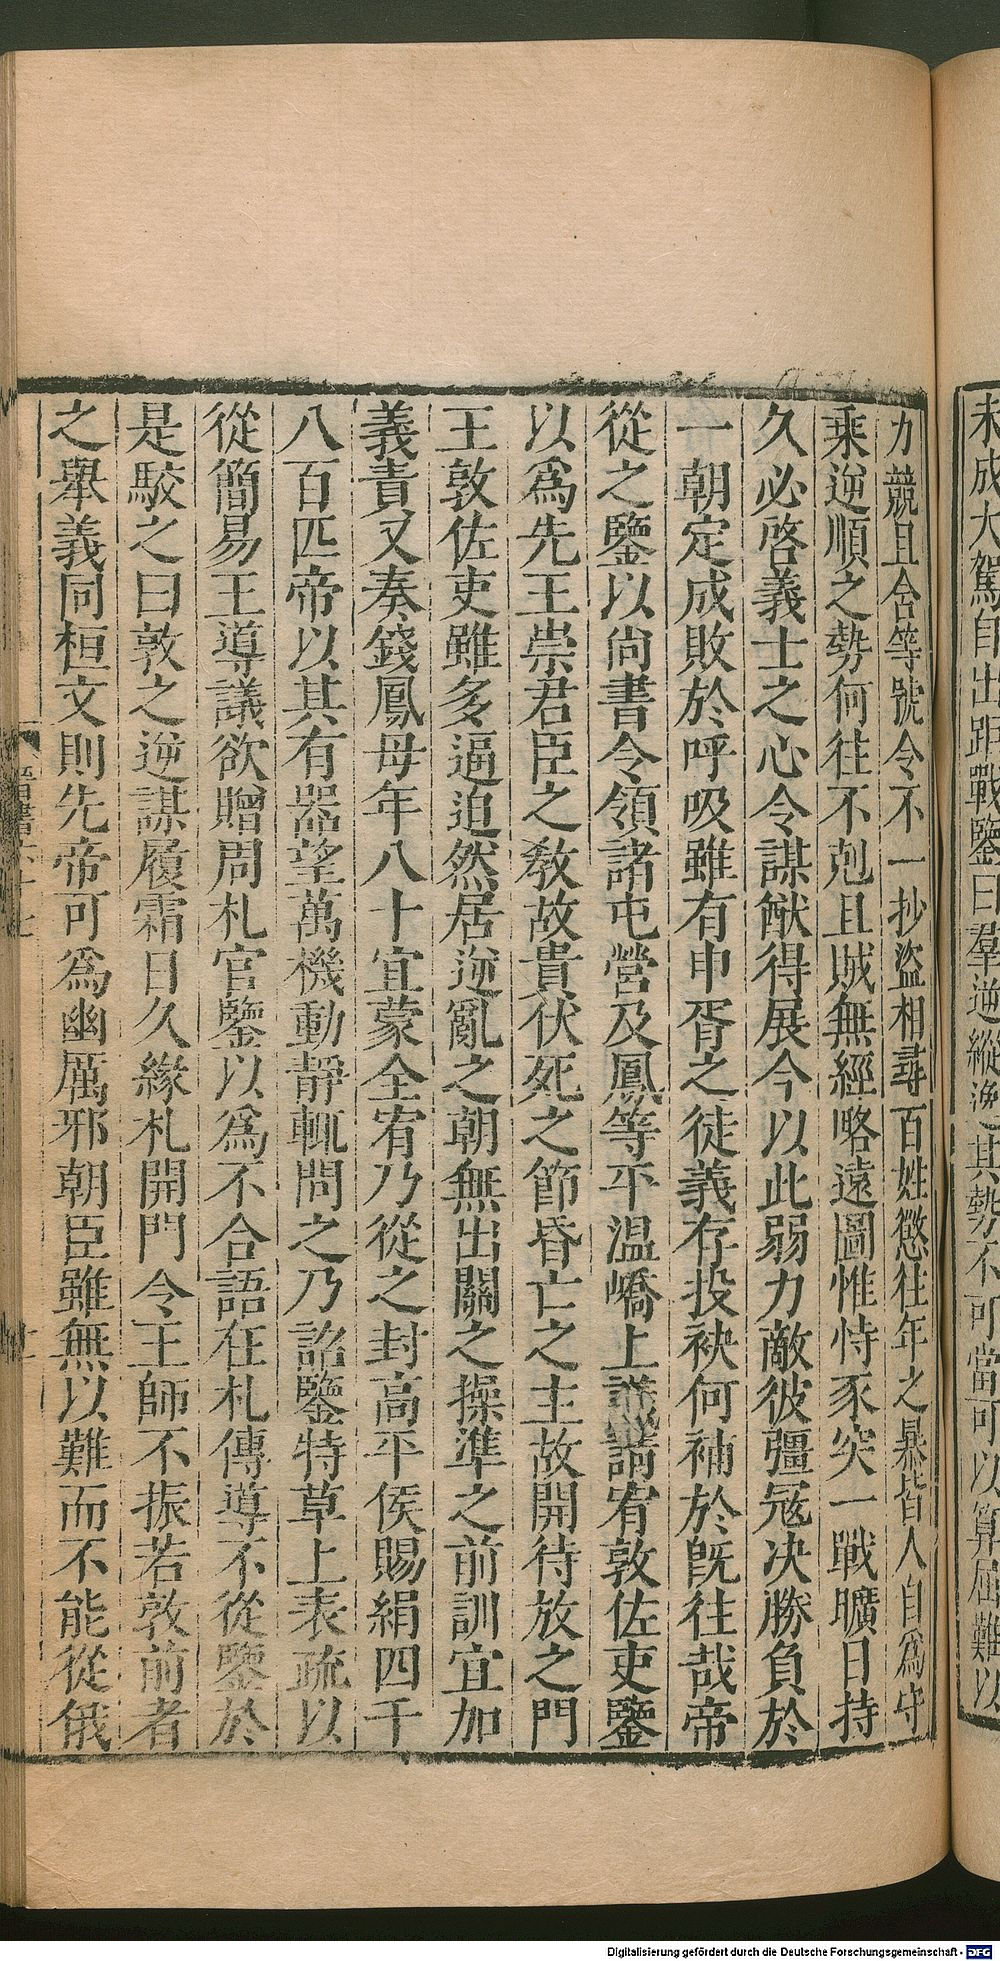 未成大駕自出距戰鑒曰羣逆縱逸其勢不可當可以算屈難以
力競且含等號令不一抄盜相尋百姓懲往年之暴皆人自爲守
乘逆順之勢何往不剋且賊無經略遠圖惟恃豕突一戰曠日持
久必啓義士之心令謀猷得展今以此弱力敵彼彊冦决勝負於
一朝定成敗於呼吸雖有申胥之徒義存投袂何補於旣往哉帝
從之鑒以尚書令領諸屯營及鳳等平溫嶠上議請宥敦佐吏鑒
以爲先王崇君臣之教故貴伏死之節昏亡之主故開待放之門
王敦佐吏雖多逼迫然居逆亂之朝無出關之操準之前訓宜加
義責又奏錢鳳母年八十宜蒙全宥乃從之封高平侯賜絹四千
八百匹帝以其有器望萬機動靜輒問之乃詔鑒特草上表疏以
從簡易王導議欲贈周札官鑒以爲不合語在札傳導不從鑒於
是駮之曰敦之逆謀履霜日久緣札開門令王師不振若敦前者
之舉義同桓文則先帝可爲幽厲邪朝臣雖無以難而不能從俄
晉書六十七
Digitalisierung gefördert durch die Deutsche Forschungsgemeinschaft - DFG